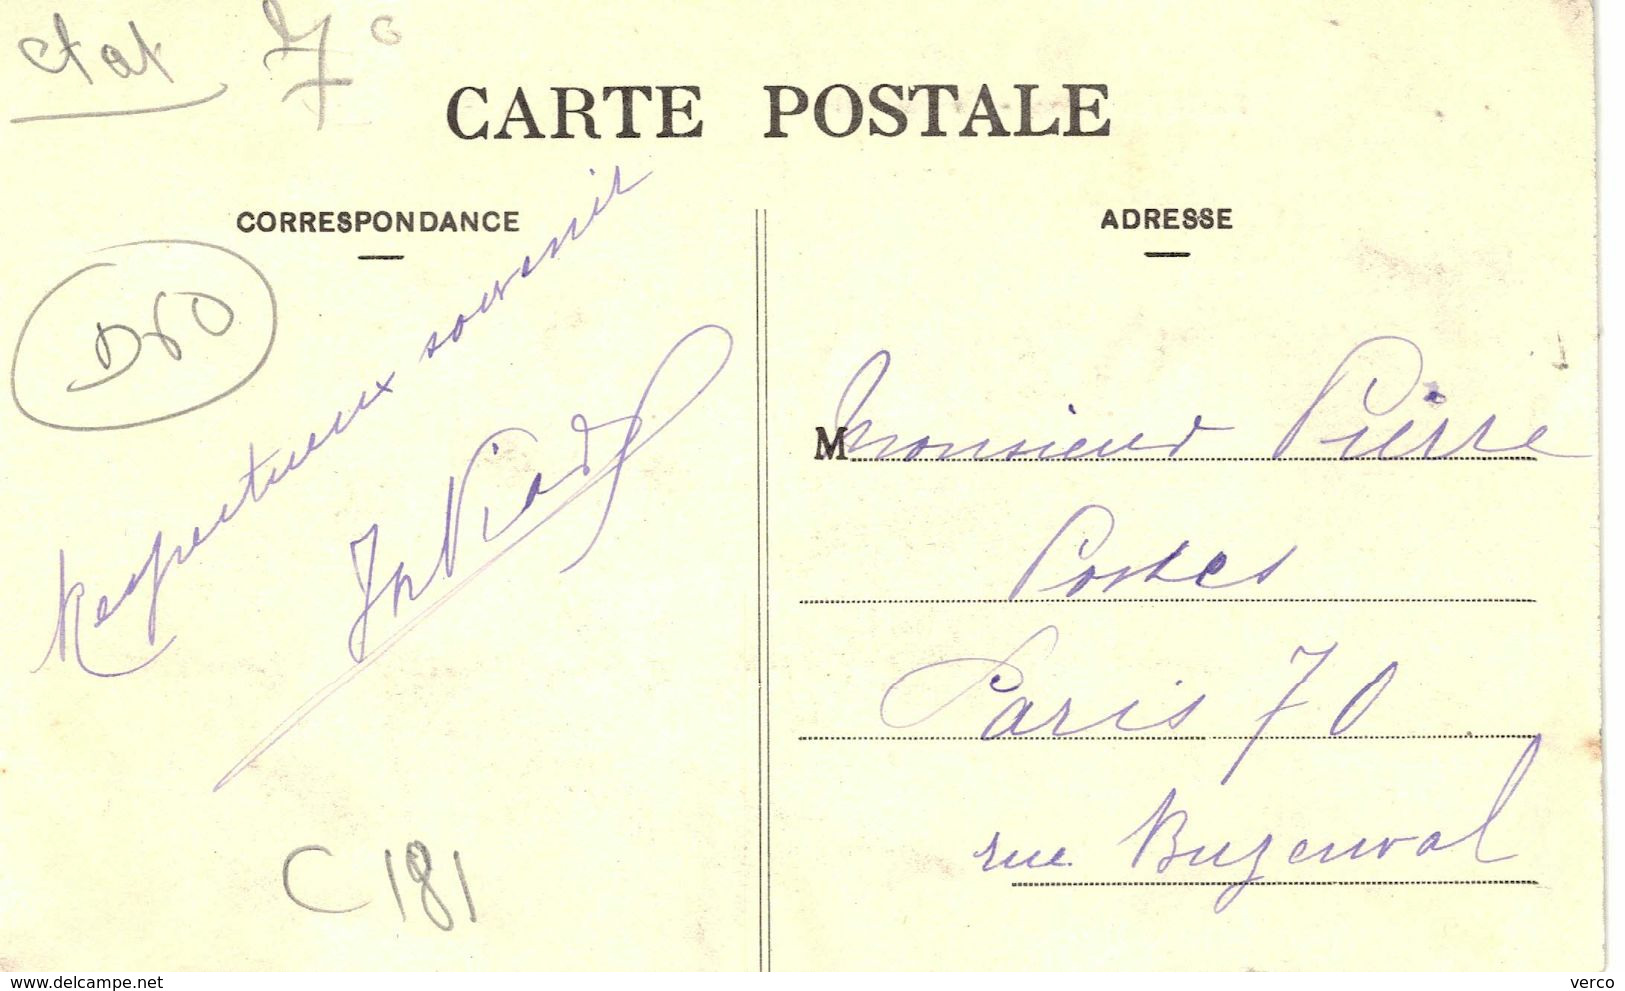 etat 7 c
CARTE POSTALE
CORRESPONDANCE
ADRESSE
D60
Respectueux souvenir
Monsieur Pierre
Postes
Paris 70
rue Buzenval
C181
verco